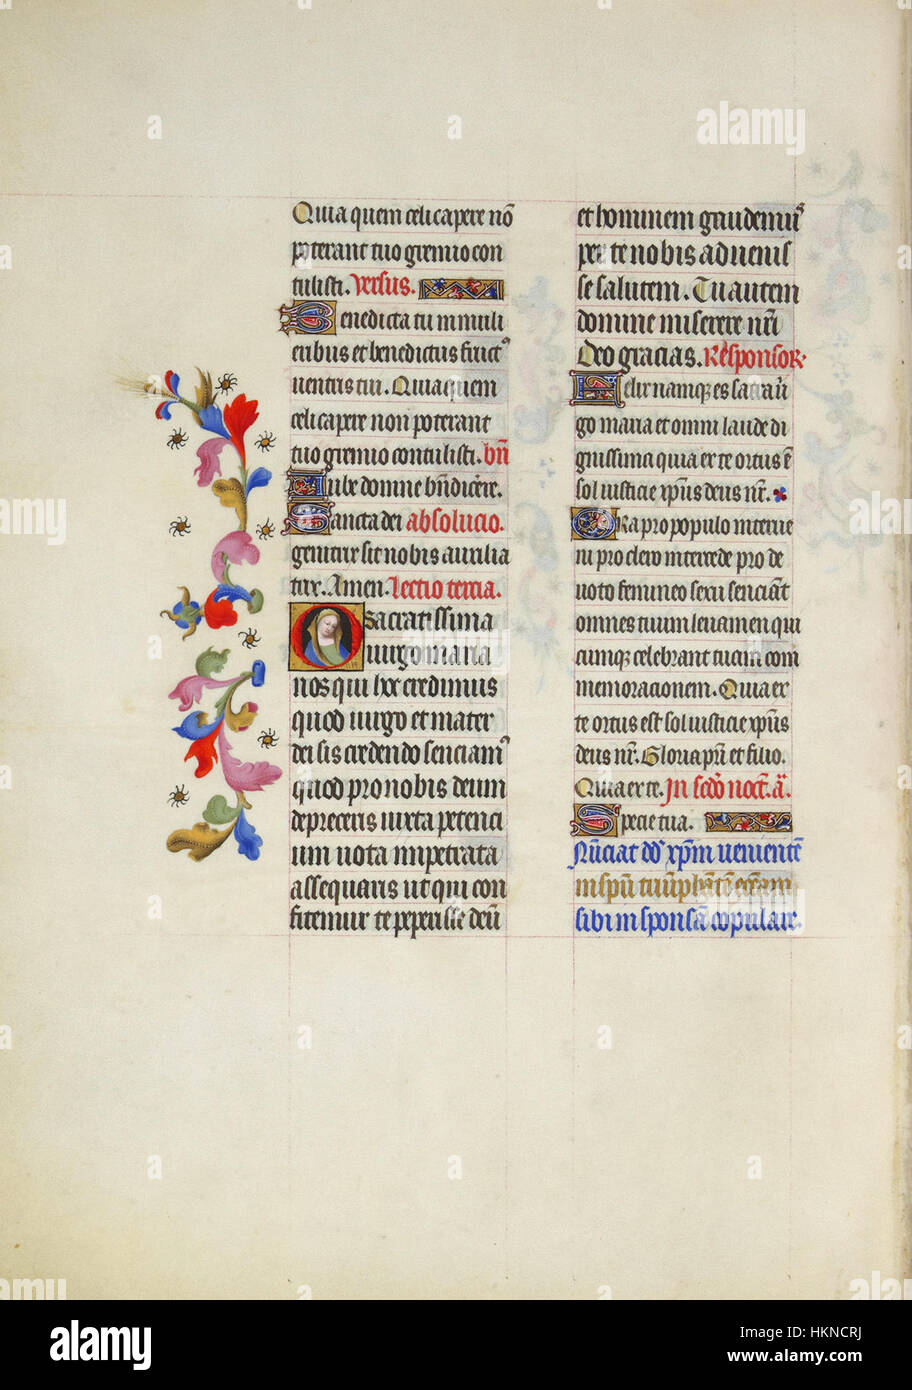 Quia quem celi capere nō
poterant tuo gremio con
tulisti. Versus.
Benedicta tu in muli
eribus et benedictus fruct⁹
ventris tui. Quia quem
celi capere non poterant
tuo gremio contulisti. bñ
Iube domne bn̄dicere.
Sancta dei absolucio.
genitrix sit nobis auxilia
trix. Amen. Lectio tercia.
O sacratissima
virgo maria
nos qui hec credimus
quod virgo et mater
dei sis credendo senciam⁹
quod pro nobis deum
depreceris iuxta petenci
um vota impetrata
assequaris ut qui con
fitemur te peperisse deū
et hominem gaudem⁹
per te nobis advenis
se salutem. Tu autem
domine miserere nr̄i
Deo gracias. Responsor.
Felix namque es sacra ũ
go maria et omni laude di
gnissima quia ex te ortus ē
sol iusticie xp̄us deus nr̄.
Ora pro populo interve
ni pro clero intercede pro de
voto femineo sexu senciāt
omnes tuum levamen qui
cumque celebrant tuam com
memoracionem. Quia ex
te ortus est sol iusticie xp̄us
deus nr̄. Gloria pr̄i et filio.
Quia ex te. In scd̄o noct. a.
Specie tua.
Nūciat
xp̄m venientē
in spū
sibi in sponsā copulare.
alamy
a
alamy
Image ID: HKNCRJ
www.alamy.com